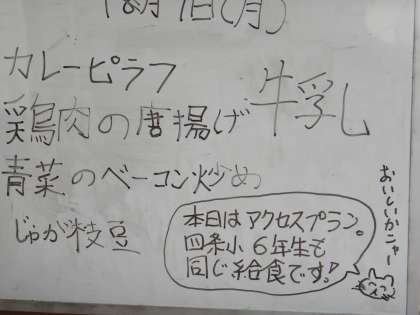 カレーピラフ
鶏肉の唐揚げ
牛乳
青菜のベーコン炒め
じゃが枝豆
本日はアクセスプラン。
四条小6年生も
同じ給食です!
おいしいかニャー